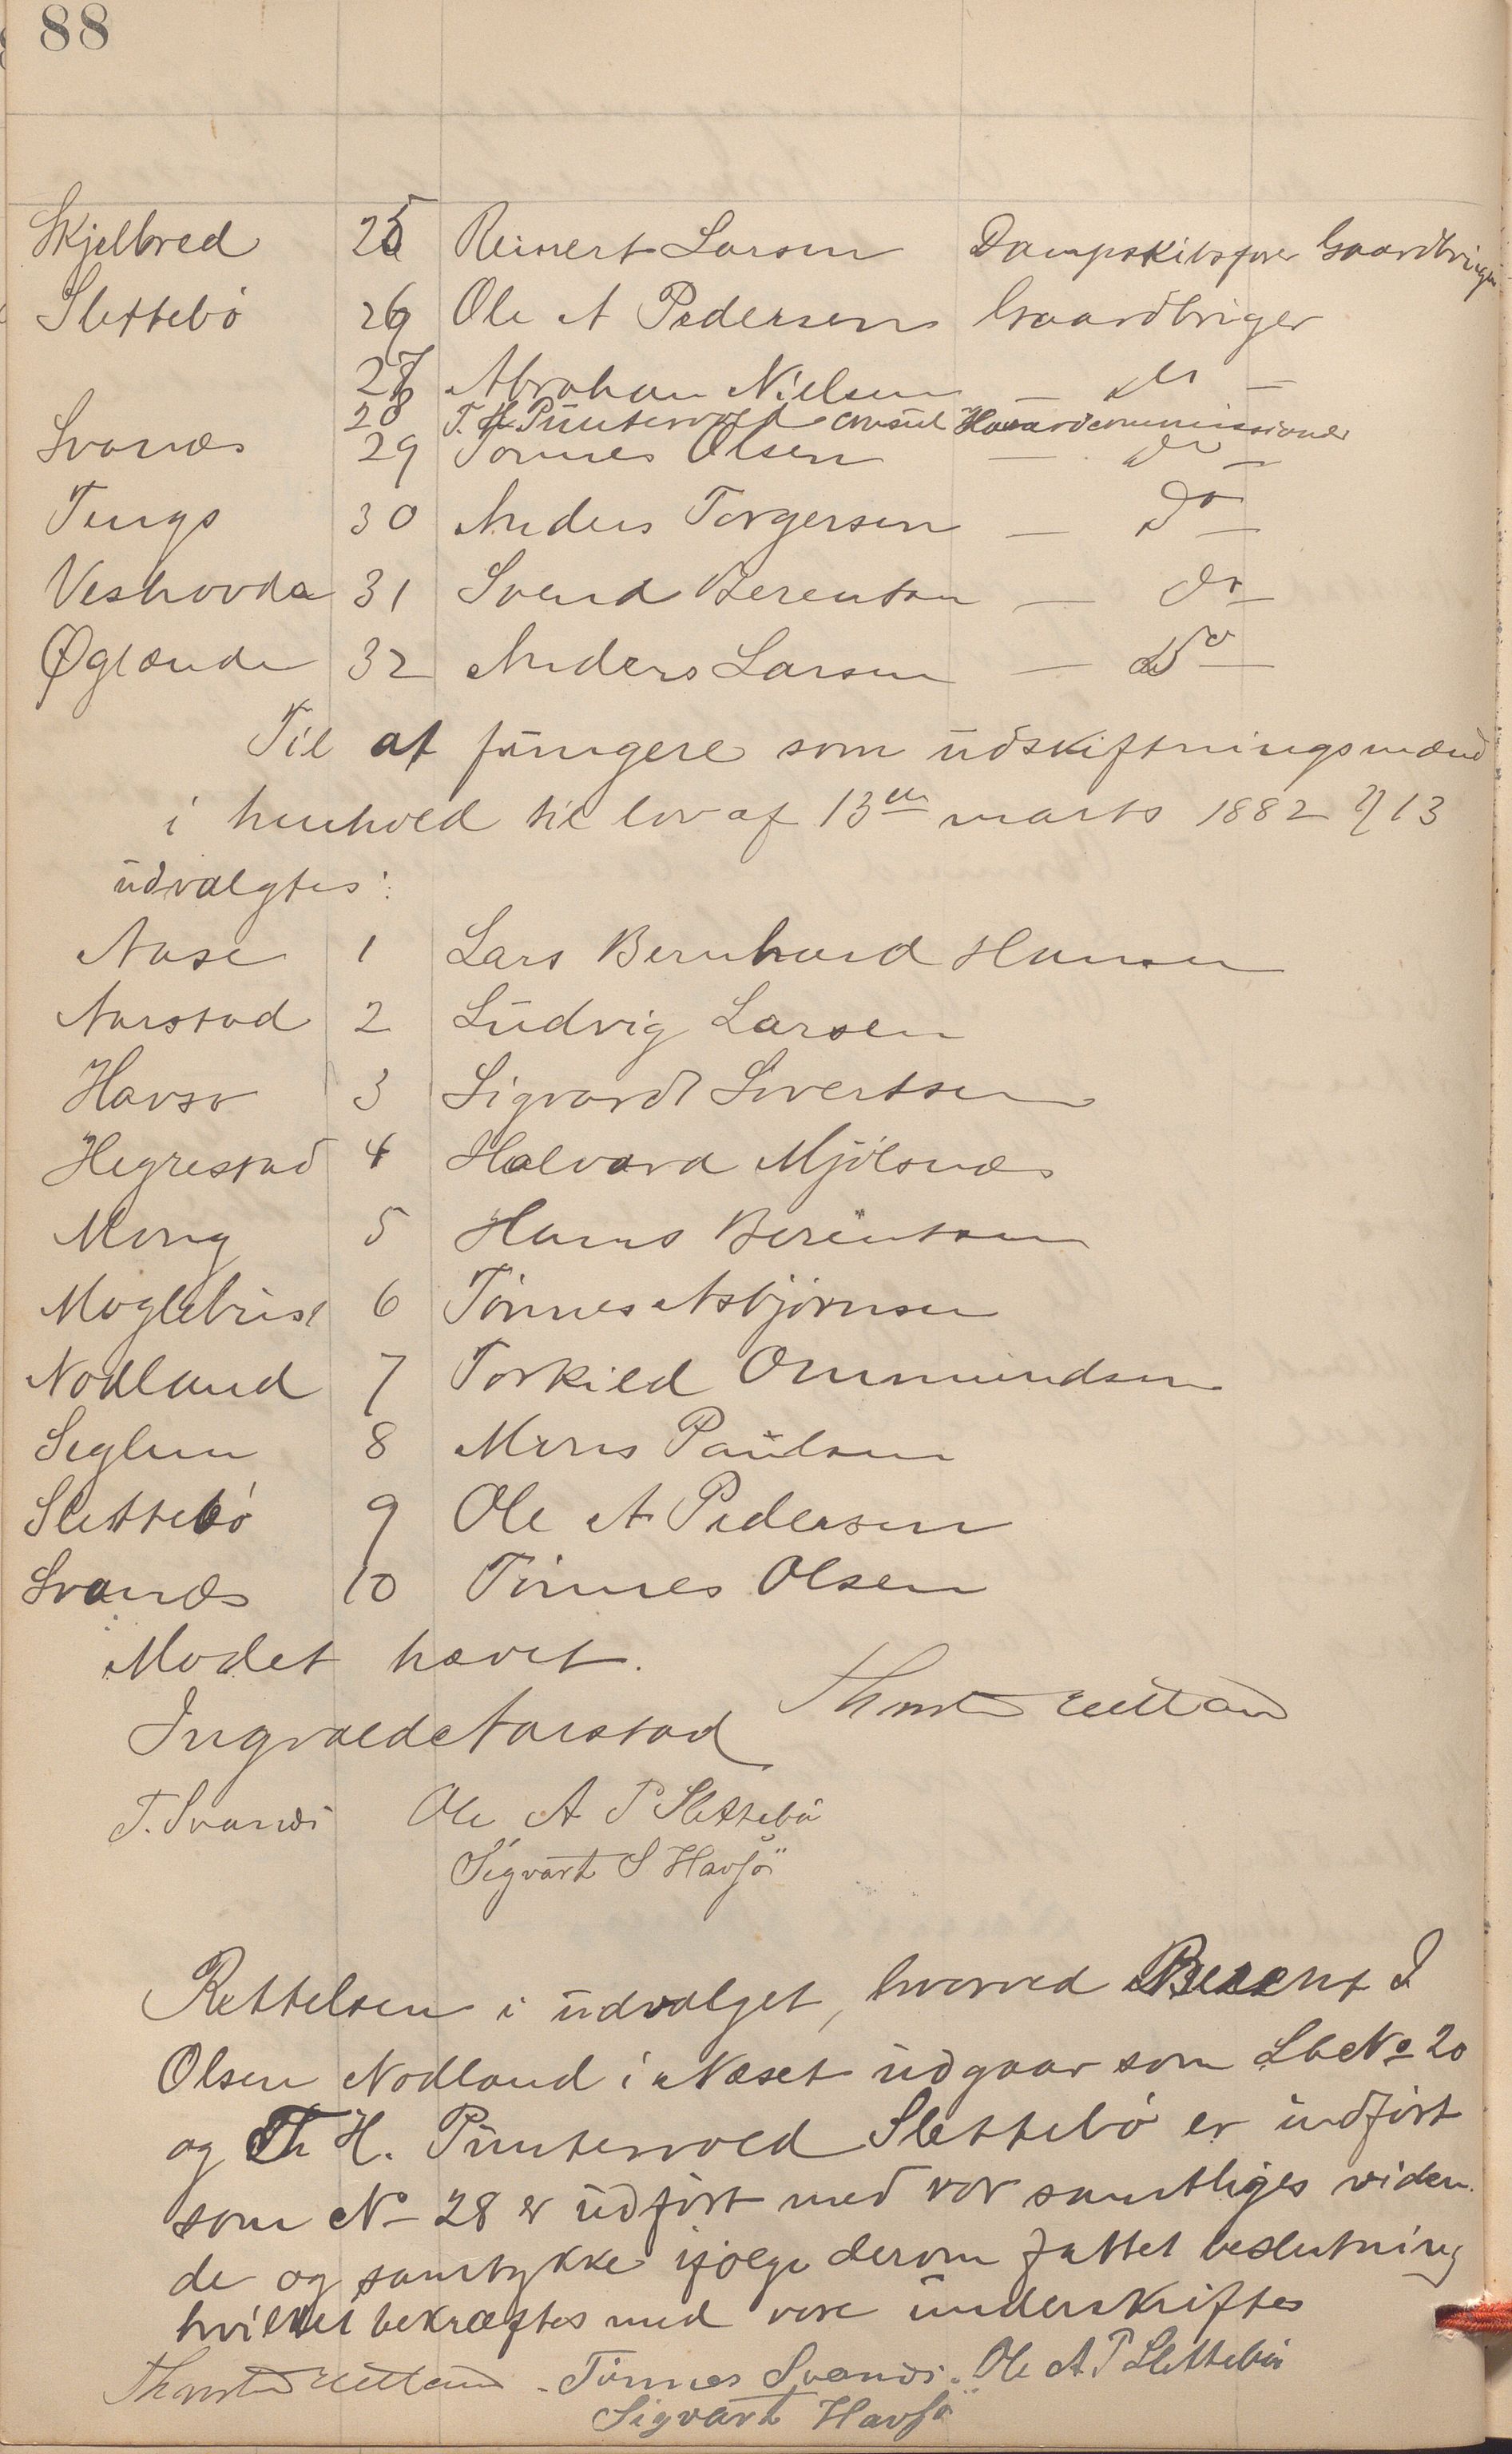 88
Skjelbred 25 Reinert Larsen Dampskibsfører Gaardbruger
Slettebö 26 Ole A Pedersen Gaardbruger
27 Abraham Nielsen — do —
28 T. H. Püntervold consül Havardcommissionær
Svanæs 29 Tönnes Olsen — do —
Tengs 30 Anders Torgersen — do —
Veshovda 31 Svend Berentsen — do —
Øglænde 32 Anders Larsen — Do —
Til at füngere som üdskiftningsmænd
i henhold til lov af 13de marts 1882 § 13
üdvalgtes:
Aase 1 Lars Bernhard Hansen
Aarstad 2 Lüdvig Larsen
Havsø 3 Sigvard Sivertsen
Hegrestad 4 Halvard Mjölsnæs
Mong 5 Hans Berentsen
Moglebüst 6 Tönnes Asbjörnsen
Nodland 7 Torkild Ommündsen
Seglem 8 Mons Paülsen
Slettebö 9 Ole A Pedersen
Svanæs 10 Tönnes Olsen
Mödet hævet.
Ingvald Aarstad
T. Svanæs Ole A P Slettebö
Sigvart S Havsö
Rettelsen i üdvalget, hvorved Berent I
Olsen Nodland i Næset üdgaar som Lb No 20
og Th H. Püntervold Slettebö er indfört
som No 28 er üdfört med vor samtliges viden
de og samtykke ifölge derom fattet beslutning
hvilket bekræftes med vore ünderskrifter
Tönnes Svanæs. Ole A P Slettebö
Sigvart Havsö